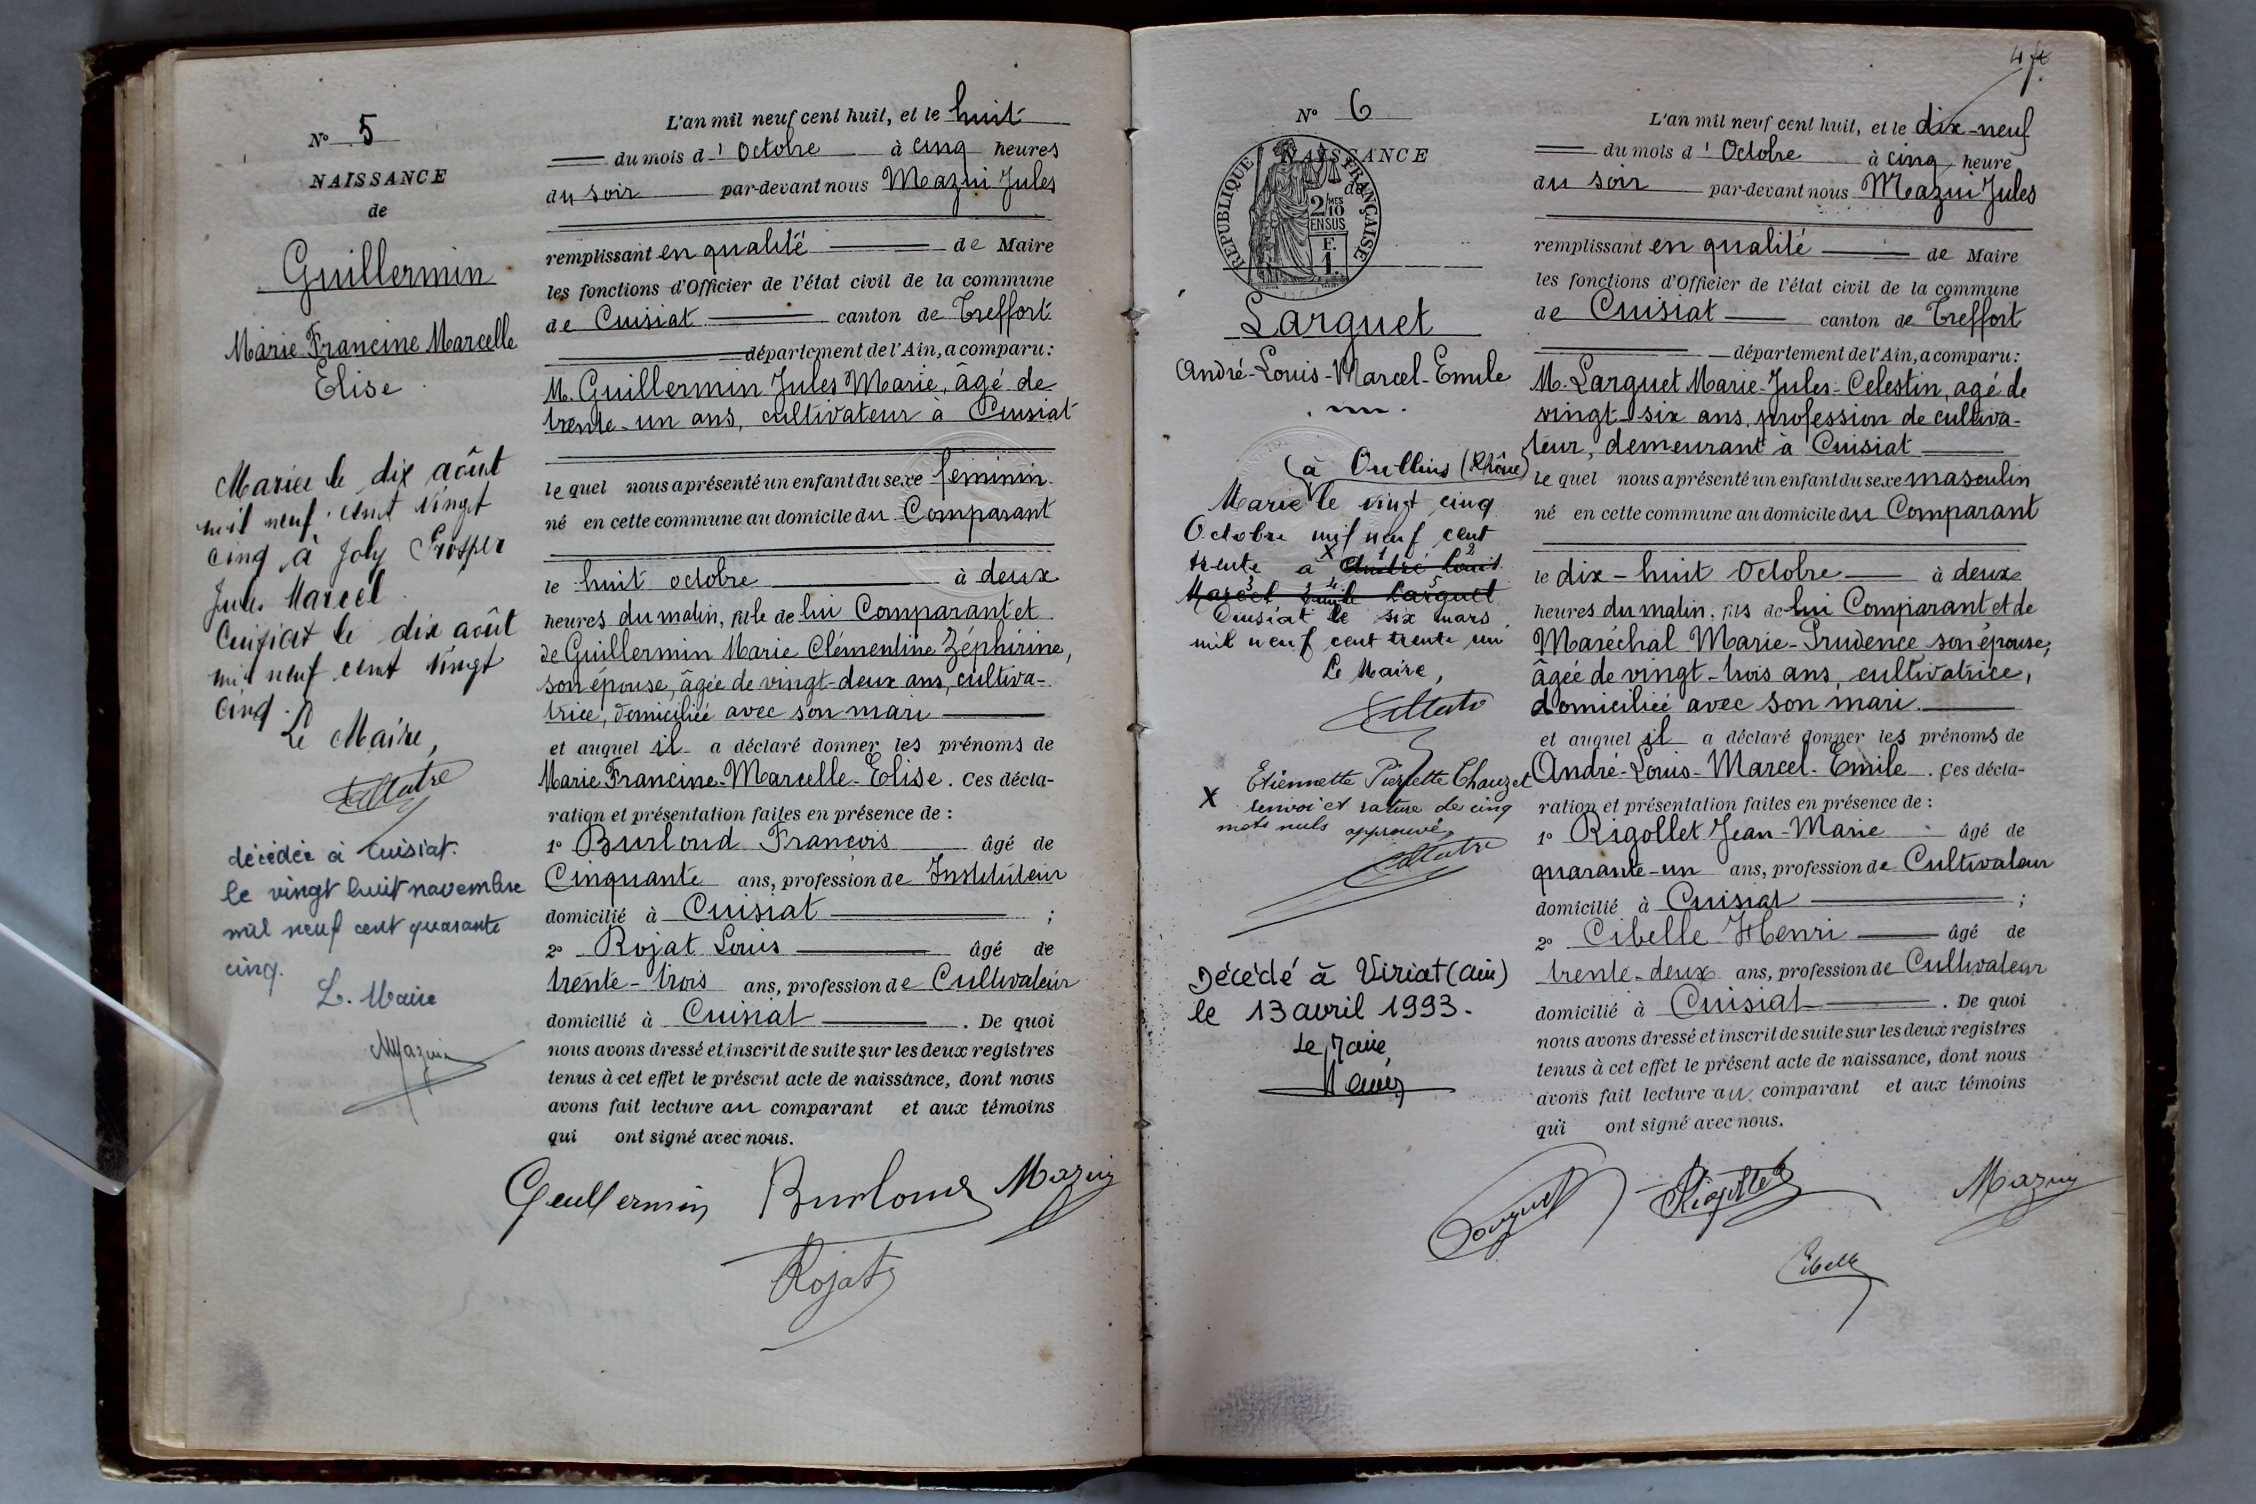 N° 5
NAISSANCE
de
Guillermin
Marie Francine Marcelle
Elise
Mariée le dix août
mil neuf cent vingt
cinq à Joly Prosper
Jules Marcel
Cuisiat le dix août
mil neuf cent vingt
cinq.
Le Maire,
décédée à Cuisiat.
le vingt huit novembre
mil neuf cent quarante
cinq.
L. Maire
Mazuir
L'an mil neuf cent huit, et le huit
du mois d' Octobre à cinq heures
du soir par-devant nous Mazui Jules
remplissant en qualité de Maire
les fonctions d'Officier de l'état civil de la commune
de Cuisiat canton de Treffort
département de l'Ain, a comparu:
M. Guillermin Jules Marie, âgé de
trente-un ans, cultivateur à Cuisiat
lequel nous a présenté un enfant du sexe féminin
né en cette commune au domicile du Comparant
le huit octobre à deux
heures du matin, fille de lui Comparant et
de Guillermin Marie Clémentine Zéphirine,
son épouse, âgée de vingt-deux ans, cultiva-
trice, domiciliée avec son mari
et auquel il a déclaré donner les prénoms de
Marie Francine-Marcelle-Elise. Ces décla-
ration et présentation faites en présence de :
1° Burloud François âgé de
Cinquante ans, profession de Instituteur
domicilié à Cuisiat ;
2° Rojat Louis âgé de
trente-trois ans, profession de Cultivateur
domicilié à Cuisiat . De quoi
nous avons dressé et inscrit de suite sur les deux registres
tenus à cet effet le présent acte de naissance, dont nous
avons fait lecture au comparant et aux témoins
qui ont signé avec nous.
Guillermin Burloud Mazuy
Rojat
4
N° 6
NAISSANCE
de
REPUBLIQUE FRANÇAISE
2/10 MES
EN SUS
F.
1.
Larguet
André-Louis-Marcel-Emile
(à Oullins (Rhône)
Marié le vingt cinq
Octobre mil neuf cent
trente à X André Louis
Marcel Emile Larguet
Cuisiat le six mars
mil neuf cent trente un
Le Maire,
X Etiennette Pierrette Chauzet
renvoi et rature de cinq
mots nuls approuvé
Décédé à Viriat (Ain)
le 13 avril 1993.
Le Maire,
L'an mil neuf cent huit, et le dix-neuf
du mois d' Octobre à cinq heure
du soir par-devant nous Mazui Jules
remplissant en qualité de Maire
les fonctions d'Officier de l'état civil de la commune
de Cuisiat canton de Treffort
département de l'Ain, a comparu:
M. Larguet Marie-Jules-Celestin, agé de
vingt-six ans, profession de cultiva-
teur, demeurant à Cuisiat
lequel nous a présenté un enfant du sexe masculin
né en cette commune au domicile du Comparant
le dix-huit Octobre à deux
heures du matin, fils de lui Comparant et de
Maréchal Marie-Prudence son épouse,
âgée de vingt-trois ans, cultivatrice,
domiciliée avec son mari.
et auquel il a déclaré donner les prénoms de
André-Louis-Marcel-Emile. Ces décla-
ration et présentation faites en présence de :
1° Rigollet Jean-Marie âgé de
quarante-un ans, profession de Cultivateur
domicilié à Cuisiat ;
2° Cibelle Henri âgé de
trente-deux ans, profession de Cultivateur
domicilié à Cuisiat . De quoi
nous avons dressé et inscrit de suite sur les deux registres
tenus à cet effet le présent acte de naissance, dont nous
avons fait lecture au comparant et aux témoins
qui ont signé avec nous.
Larguet Rigollet Mazuy
Cibelle